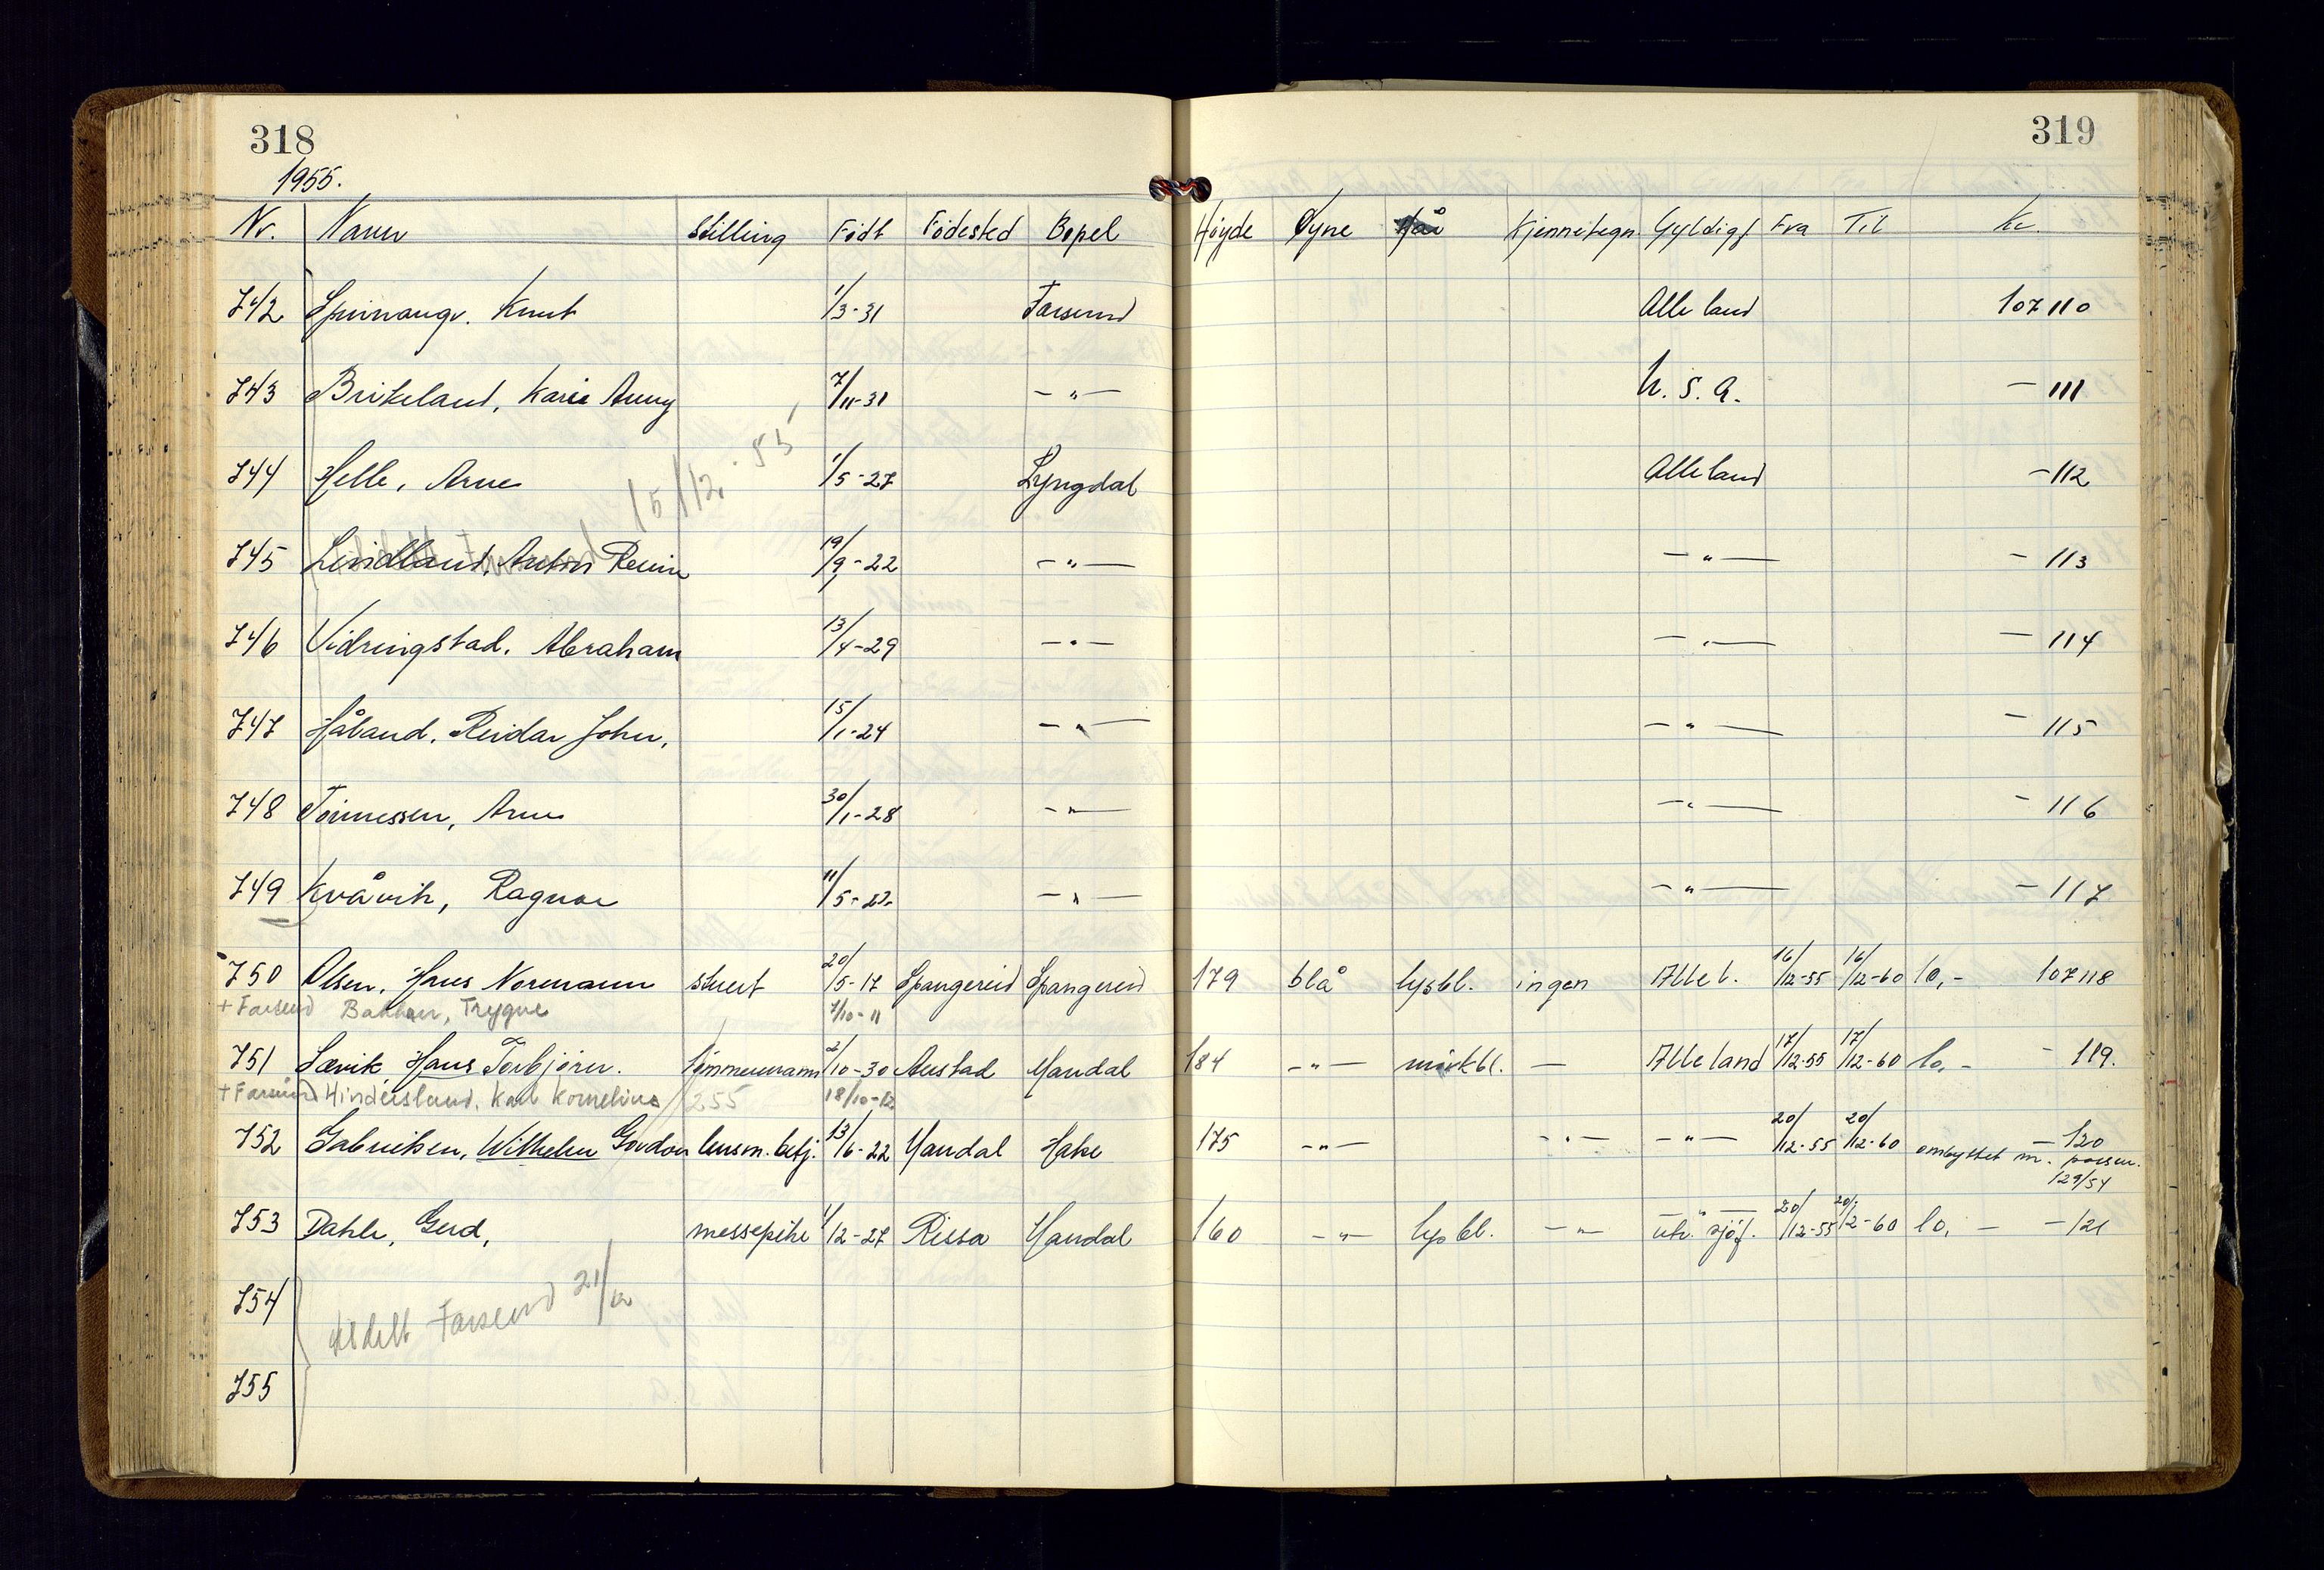 318
319
1955.
Nr. Navn Stilling Födt Födested Bopel Høyde Øyne Hår Kjennetegn Gyldigf Fra Til Kr.
742 Knut 1/3-31 Farsund Alle land 107110
743 Birkeland, Karie Anny 7/11-31 -"- U.S.A. - 111
744 Helle, Arne 1/5-27 Lyngdal Alle land - 112
15/12-55
745 Lindland, Anton 19/9-22 -"- -"- - 113
746 Vidringstad, Abraham 13/4-29 -"- -"- - 114
747 Håland, Reidar John, 15/1-24 -"- -"- - 115
748 Tönnessen, Arne 30/1-28 -"- -"- - 116
749 Kvåvik, Ragnar 11/5-22 -"- -"- - 117
750 Olsen, Hans Normann stuert 20/5-17 Spangereid Spangereid 179 blå lysbl. ingen Alle l. 16/12-55 16/12-60 10,- 107118
+ Farsund Bakken, Trygve 7/10-11
751 Lövik, Hans Torbjörn. tömmermann 2/10-30 Austad Mandal 184 -"- mörkbl. - Alle land 17/12-55 17/12-60 10,- - 119.
+ Farsund Hindersland, Karl Kornelius 255 18/10-12
752 Gabrielsen, Wilhelm Gordon lensm. betj. 13/6-22 Mandal Hake 175 -"- -"- -"- 20/12-55 20/12-60 ombyttet m. passnr. - 120
129/54
753 Dahle, Gerd, messepike 1/12-27 Rissa Mandal 160 -"- lysbl. -"- -"- utv. sjöf. 20/12-55 20/12-60 10,- - 121
754
utdelt Farsund 21/12
755